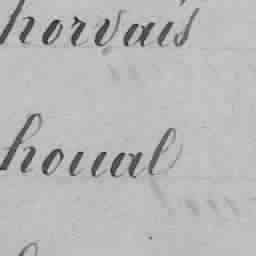 horvais
houal